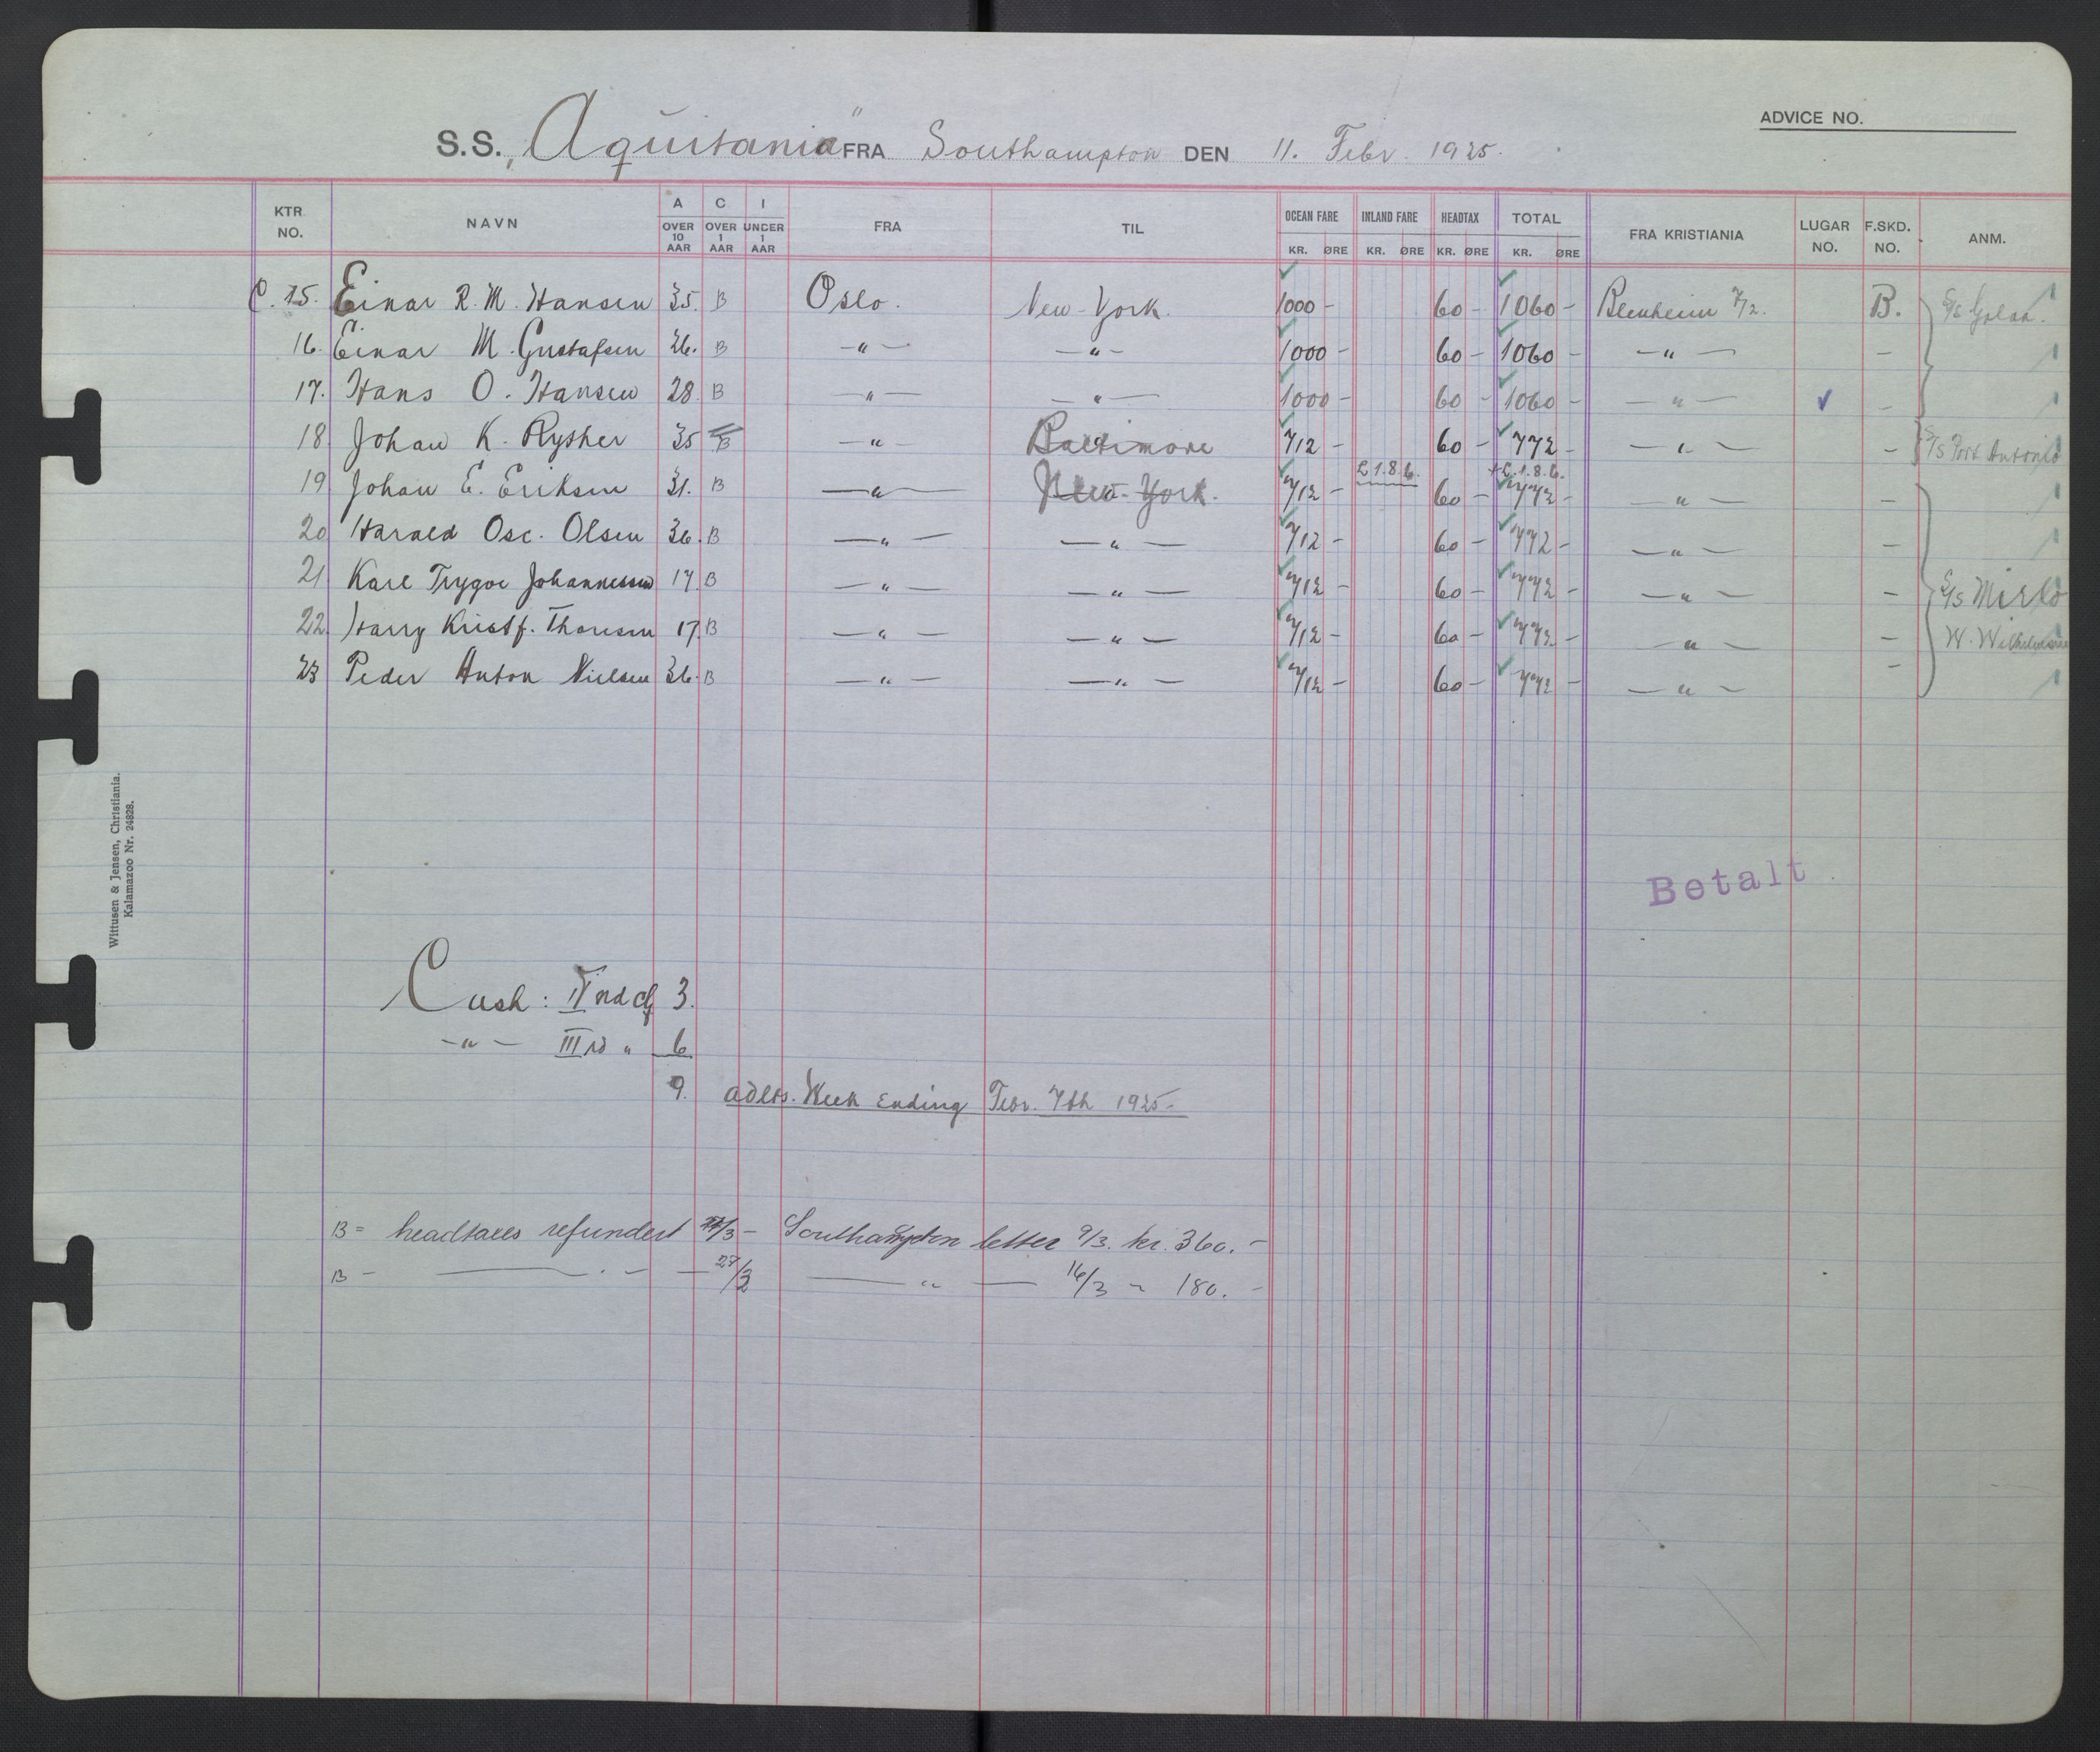 ADVICE NO.
S.S. „Aquitania" FRA Southampton DEN 11. Febr. 1925.
KTR. NO. NAVN A OVER 10 AAR C OVER 1 AAR I UNDER 1 AAR FRA TIL OCEAN FARE KR. ØRE INLAND FARE KR. ØRE HEADTAX KR. ØRE TOTAL KR. ØRE FRA KRISTIANIA LUGAR NO. F.SKD. NO. ANM.
C. 15. Einar R. M. Hansen 35. B Oslo. New-York. 1000 - 60 - 1060 - Blenheim 7/2. B. S/S
16. Einar M. Gustafsen 26. B -"- -"- 1000 - 60 - 1060 - -"- -
17. Hans O. Hansen 28. B -"- -"- 1000 - 60 - 1060 - -"- -
18 Johan K. Rysher 35 B -"- Baltimore 712 - £ 1.8.6. 60 - 772 - + £ 1.8.6. -"- - S/S Port Antonio
19 Johan E. Eriksen 31. B -"- New-York. 712 - 60 - 772 - -"- -
20 Harald Osc. Olsen 36. B -"- -"- 712 - 60 - 772 - -"- -
21 Karl Trygve Johannessen 17. B -"- -"- 712 - 60 - 772 - -"- - S/S Mirlo
22 Harry Kristf. Thoresen 17. B -"- -"- 712 - 60 - 772 - -"- - W. Wilhelmsen
23 Peder Anton Nielsen 36. B -"- -"- 712 - 60 - 772 - -"- -
Wittusen & Jensen, Christiania.
Kalamazoo Nr. 24828.
Betalt
Cash: II nd cl 3.
-"- III rd " 6
9. adlts. Week Ending Febr. 7th 1925-
B = headtaxes refundert /3 - Southampton letter 9/3. kr. 360.-
B - -"- - 27/3 -"- 16/3 - 180.-